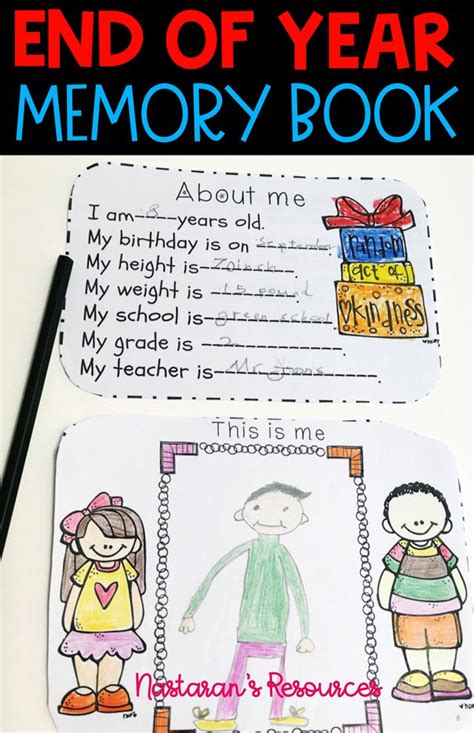 END OF YEAR
MEMORY BOOK
About me
I am 8 years old.
My birthday is on September
My height is 70 inch.
My weight is 15 pound.
My school is green school
My grade is 2.
My teacher is Mr
random
act of
kindness
This is me
Nastaran's Resources